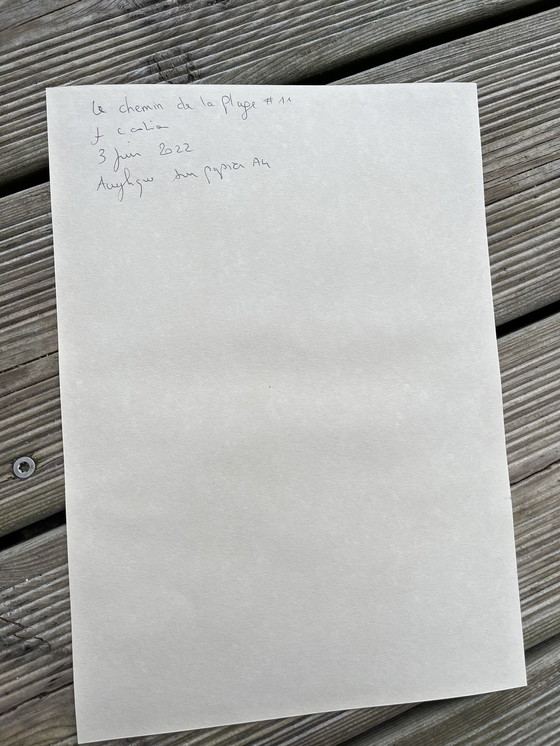 Le chemin de la plage #11
3 juin 2022
Acrylique sur papier A4